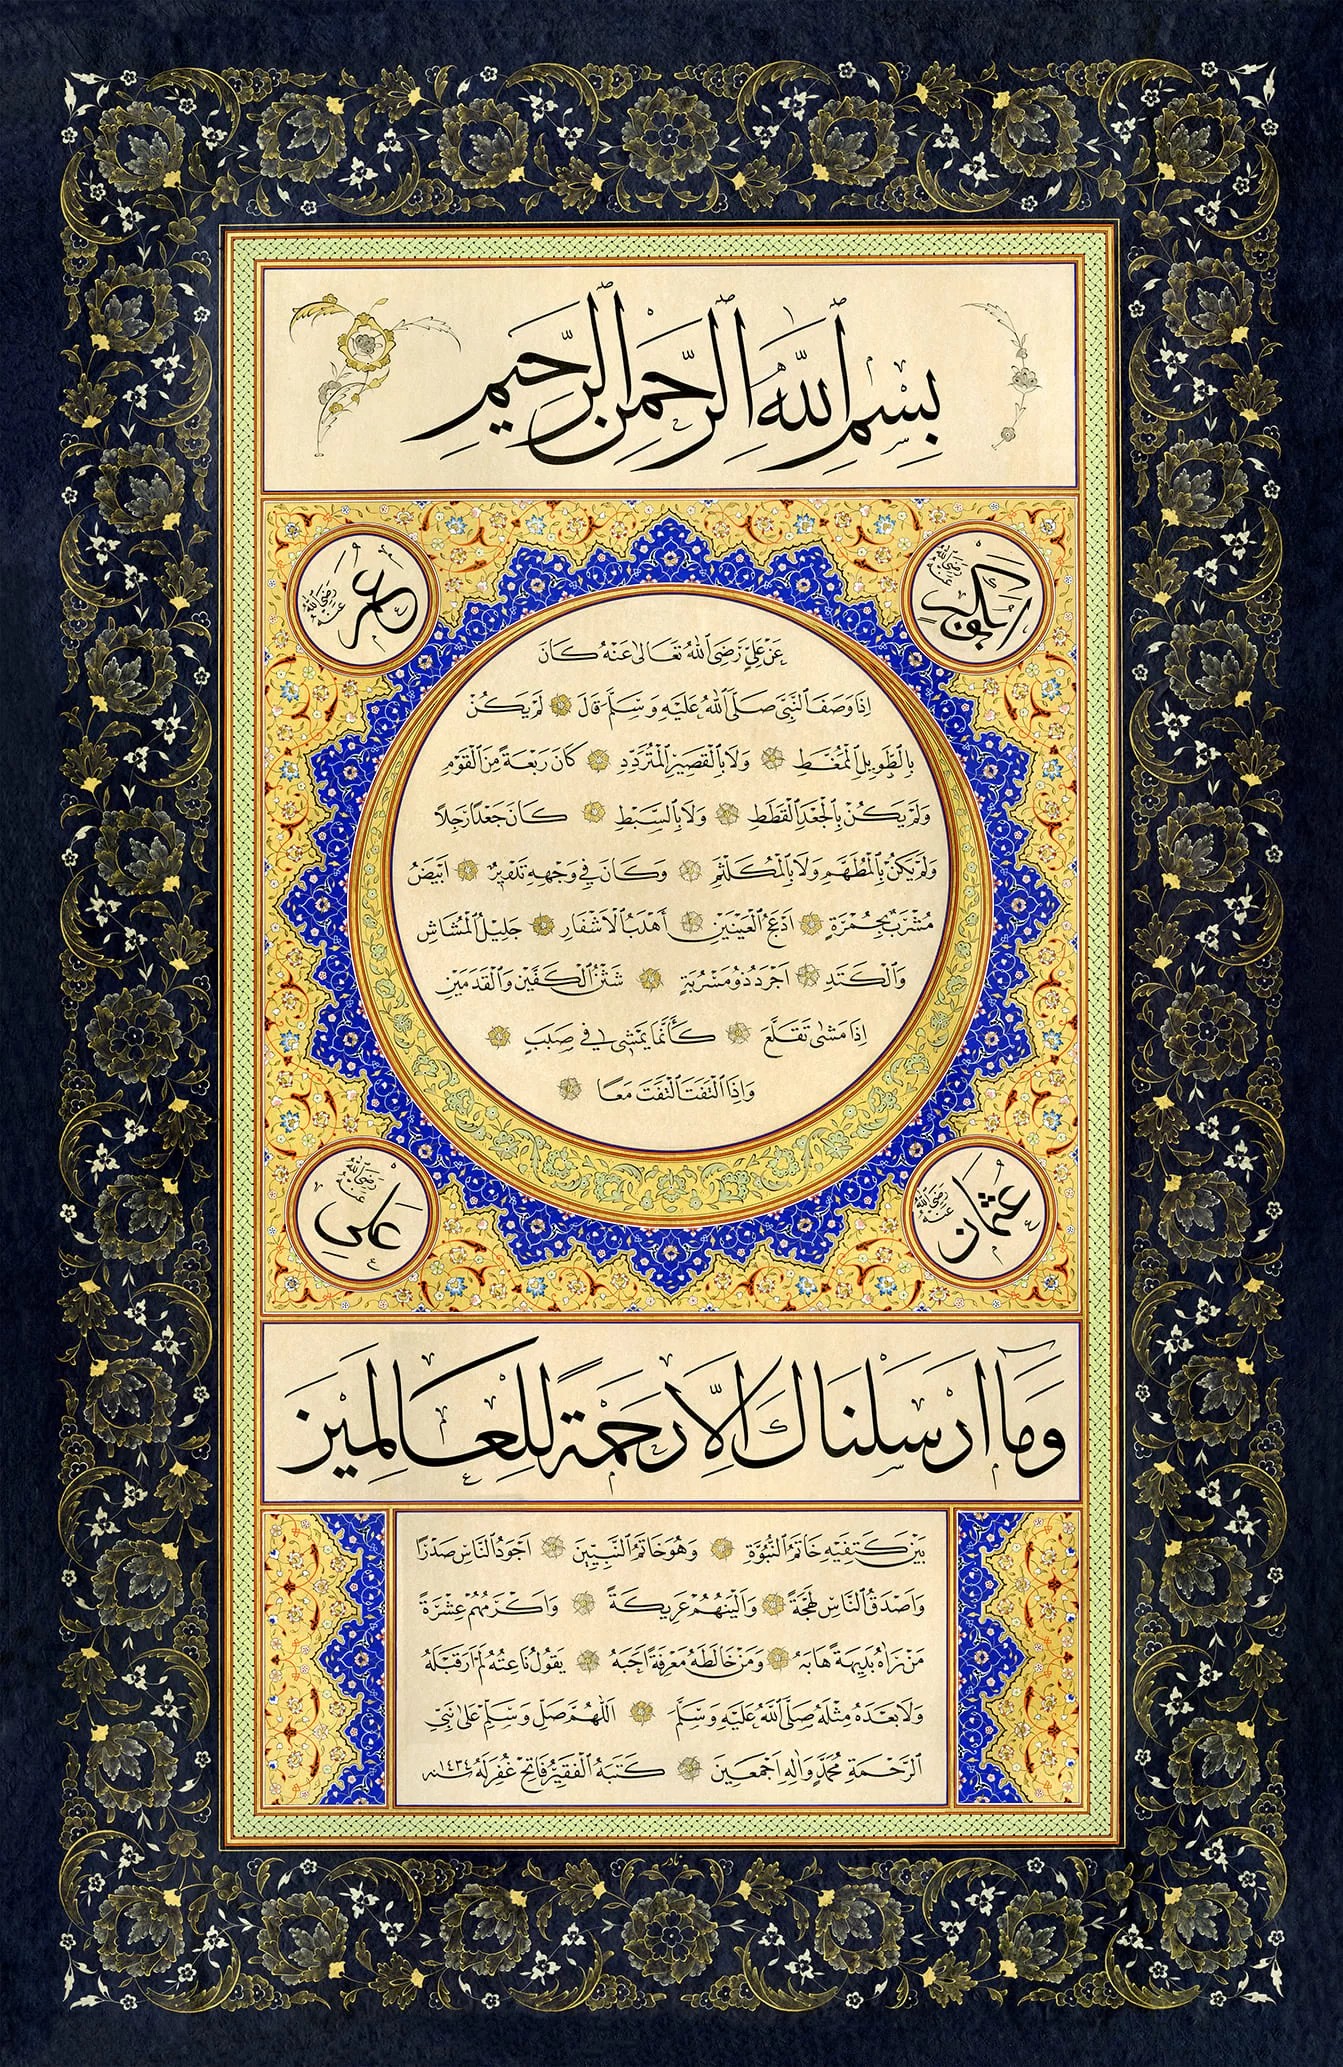 بِسْمِ اللّٰهِ الرَّحْمٰنِ الرَّحِيمِ
ابوبكر رضي الله عنه
عمر رضي الله عنه
عَنْ عَلِيٍّ رَضِيَ اللّٰهُ تَعَالٰى عَنْهُ كَانَ
اِذَا وَصَفَ النَّبِيَّ صَلَّى اللّٰهُ عَلَيْهِ وَسَلَّمَ قَالَ لَمْ يَكُنْ
بِالطَّوِيلِ الْمُمَّغِطِ وَلَا بِالْقَصِيرِ الْمُتَرَدِّدِ كَانَ رَبْعَةً مِنَ الْقَوْمِ
وَلَمْ يَكُنْ بِالْجَعْدِ الْقَطَطِ وَلَا بِالسَّبْطِ كَانَ جَعْدًا رَجِلًا
وَلَمْ يَكُنْ بِالْمُطَهَّمِ وَلَا بِالْمُكَلْثَمِ وَكَانَ فِي وَجْهِهِ تَدْوِيرٌ اَبْيَضُ
مُشْرَبٌ بِحُمْرَةٍ اَدْعَجُ الْعَيْنَيْنِ أَهْدَبُ الْاَشْفَارِ جَلِيلُ الْمُشَاشِ
وَالْكَتَدِ اَجْرَدُ ذُو مَسْرُبَةٍ شَثْنُ الْكَفَّيْنِ وَالْقَدَمَيْنِ
اِذَا مَشٰى تَقَلَّعَ كَأَنَّمَا يَمْشِي فِي صَبَبٍ
وَاِذَا الْتَفَتَ الْتَفَتَ مَعًا
عثمان رضي الله عنه
علي رضي الله عنه
وَمَا اَرْسَلْنَاكَ اِلَّا رَحْمَةً لِلْعَالَمِينَ
بَيْنَ كَتِفَيْهِ خَاتَمُ النُّبُوَّةِ وَهُوَ خَاتَمُ النَّبِيِّينَ اَجْوَدُ النَّاسِ صَدْرًا
وَاَصْدَقُ النَّاسِ لَهْجَةً وَاَلْيَنُهُمْ عَرِيكَةً وَاَكْرَمُهُمْ عِشْرَةً
مَنْ رَاٰهُ بَدِيهَةً هَابَهُ وَمَنْ خَالَطَهُ مَعْرِفَةً اَحَبَّهُ يَقُولُ نَاعِتُهُ لَمْ اَرَ قَبْلَهُ
وَلَا بَعْدَهُ مِثْلَهُ صَلَّى اللّٰهُ عَلَيْهِ وَسَلَّمَ اَللّٰهُمَّ صَلِّ وَسَلِّمْ عَلٰى نَبِيِّ
الرَّحْمَةِ مُحَمَّدٍ وَاٰلِهِ اَجْمَعِينَ كَتَبَهُ الْفَقِيرُ فَاتِحْ غُفِرَ لَهُ سنه ١٤٣٤